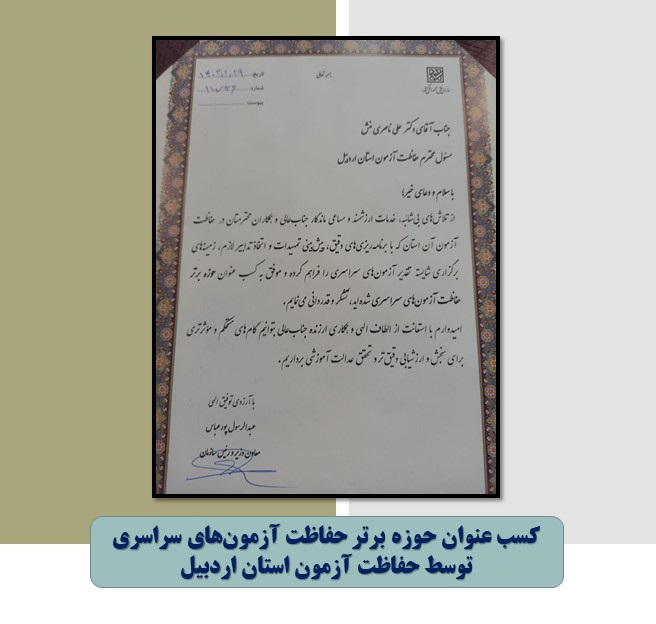 باسمه تعالی
تاریخ:
شماره:
پیوست:
جناب آقای دکتر علی ناصری منش
مسئول محترم حفاظت آزمون استان اردبیل
با سلام و دعای خیر؛
از تلاش‌های بی‌شائبه، خدمات ارزشمند و مساعی ماندگار جناب‌عالی و همکاران محترمتان در حفاظت
آزمون آن استان که با برنامه‌ریزی‌های دقیق، پیش‌بینی تمهیدات و اتخاذ تدابیر لازم، زمینه‌های
برگزاری شایسته تقدیر آزمون‌های سراسری را فراهم کرده و موفق به کسب عنوان حوزه برتر
حفاظت آزمون‌های سراسری شده‌اید، تشکر و قدردانی می‌نمایم.
امیدوارم با استعانت از الطاف الهی و همکاری ارزنده جناب‌عالی بتوانیم گام‌های مستحکم و مؤثرتری
برای سنجش و ارزشیابی دقیق‌تر و تحقق عدالت آموزشی برداریم.
با آرزوی توفیق الهی
عبدالرسول پورعباس
معاون وزیر و رئیس سازمان
کسب عنوان حوزه برتر حفاظت آزمون‌های سراسری
توسط حفاظت آزمون استان اردبیل